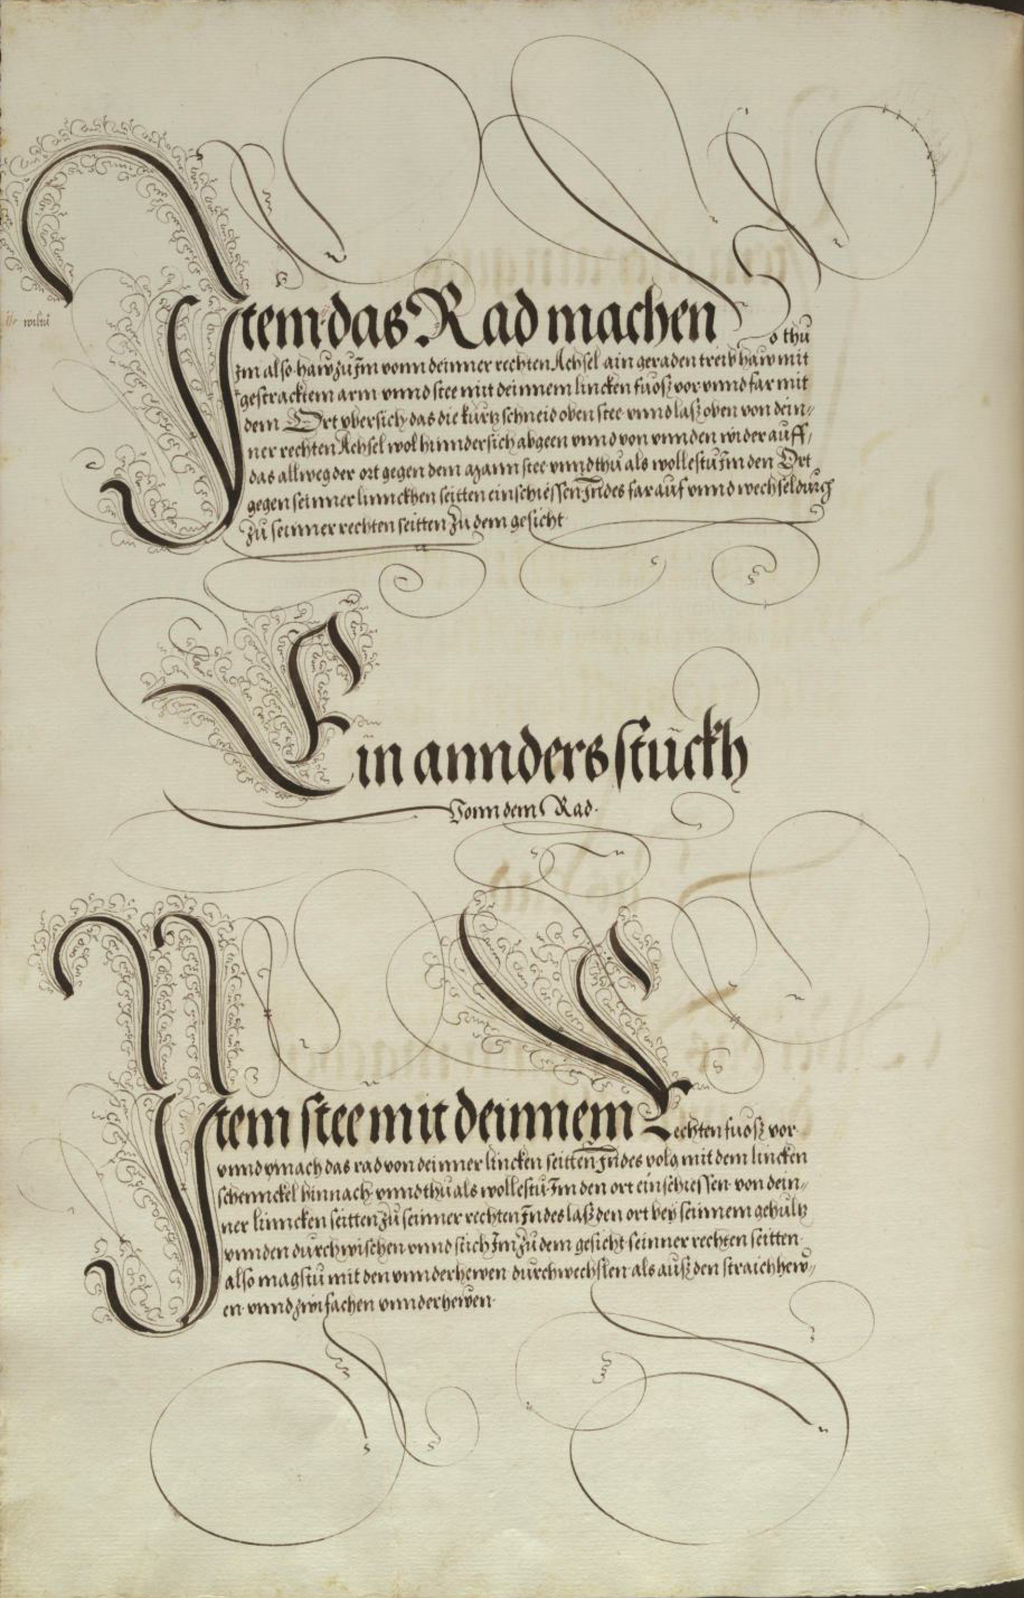 Item das Rad machen so thu
Im also haw zu Im vonn deinner rechten Achsel ain geraden treib haw mit
gestracktem arm vnnd stee mit deinnem lincken fuosz vor vnnd far mit
dem Ort vbersich das die kurtz schneid oben stee vnnd lasz oben von dein=
ner rechten Achsel wol hinndersich abgeen vnnd von vnnden wider auff,
das allweg der ort gegen dem mann stee vnnd thu als wollestu Im den Ort
gegen seinner linnckhen seitten einschiessen Inndes far auf vnnd wechsel durch
zu seinner rechten seitten zu dem gesicht
Ein annders stuckh
Vonn dem Rad.
Item stee mit deinnem Rechten fuosz vor
vnnd mach das rad von deinner lincken seitten Inndes volg mit dem lincken
schennckel hinnach vnnd thu als wollestu Im den ort einschiessen von dein=
ner linncken seitten zu seinner rechten Inndes lasz den ort bey seinnem gehultz
vnnden durchwischen vnnd stich Im zu dem gesicht seinner rechten seitten
also magstu mit den vnnderhewen durchwechslen als ausz den straichhew=
en vnnd zwifachen vnnderhewen